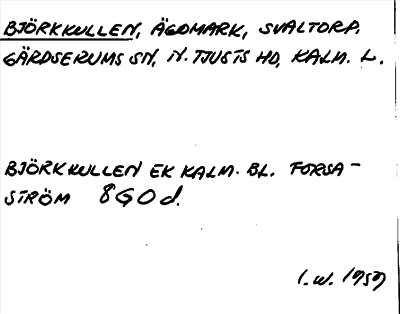 BJÖRKKULLEN, ÄGOMARK, SVALTORP.
GÄRDSERUMS SN, N. TJUSTS HD, KALM. L.
BJÖRKKULLEN EK KALM. BL. FORSA-
STRÖM 8GOd.
I.W. 1959